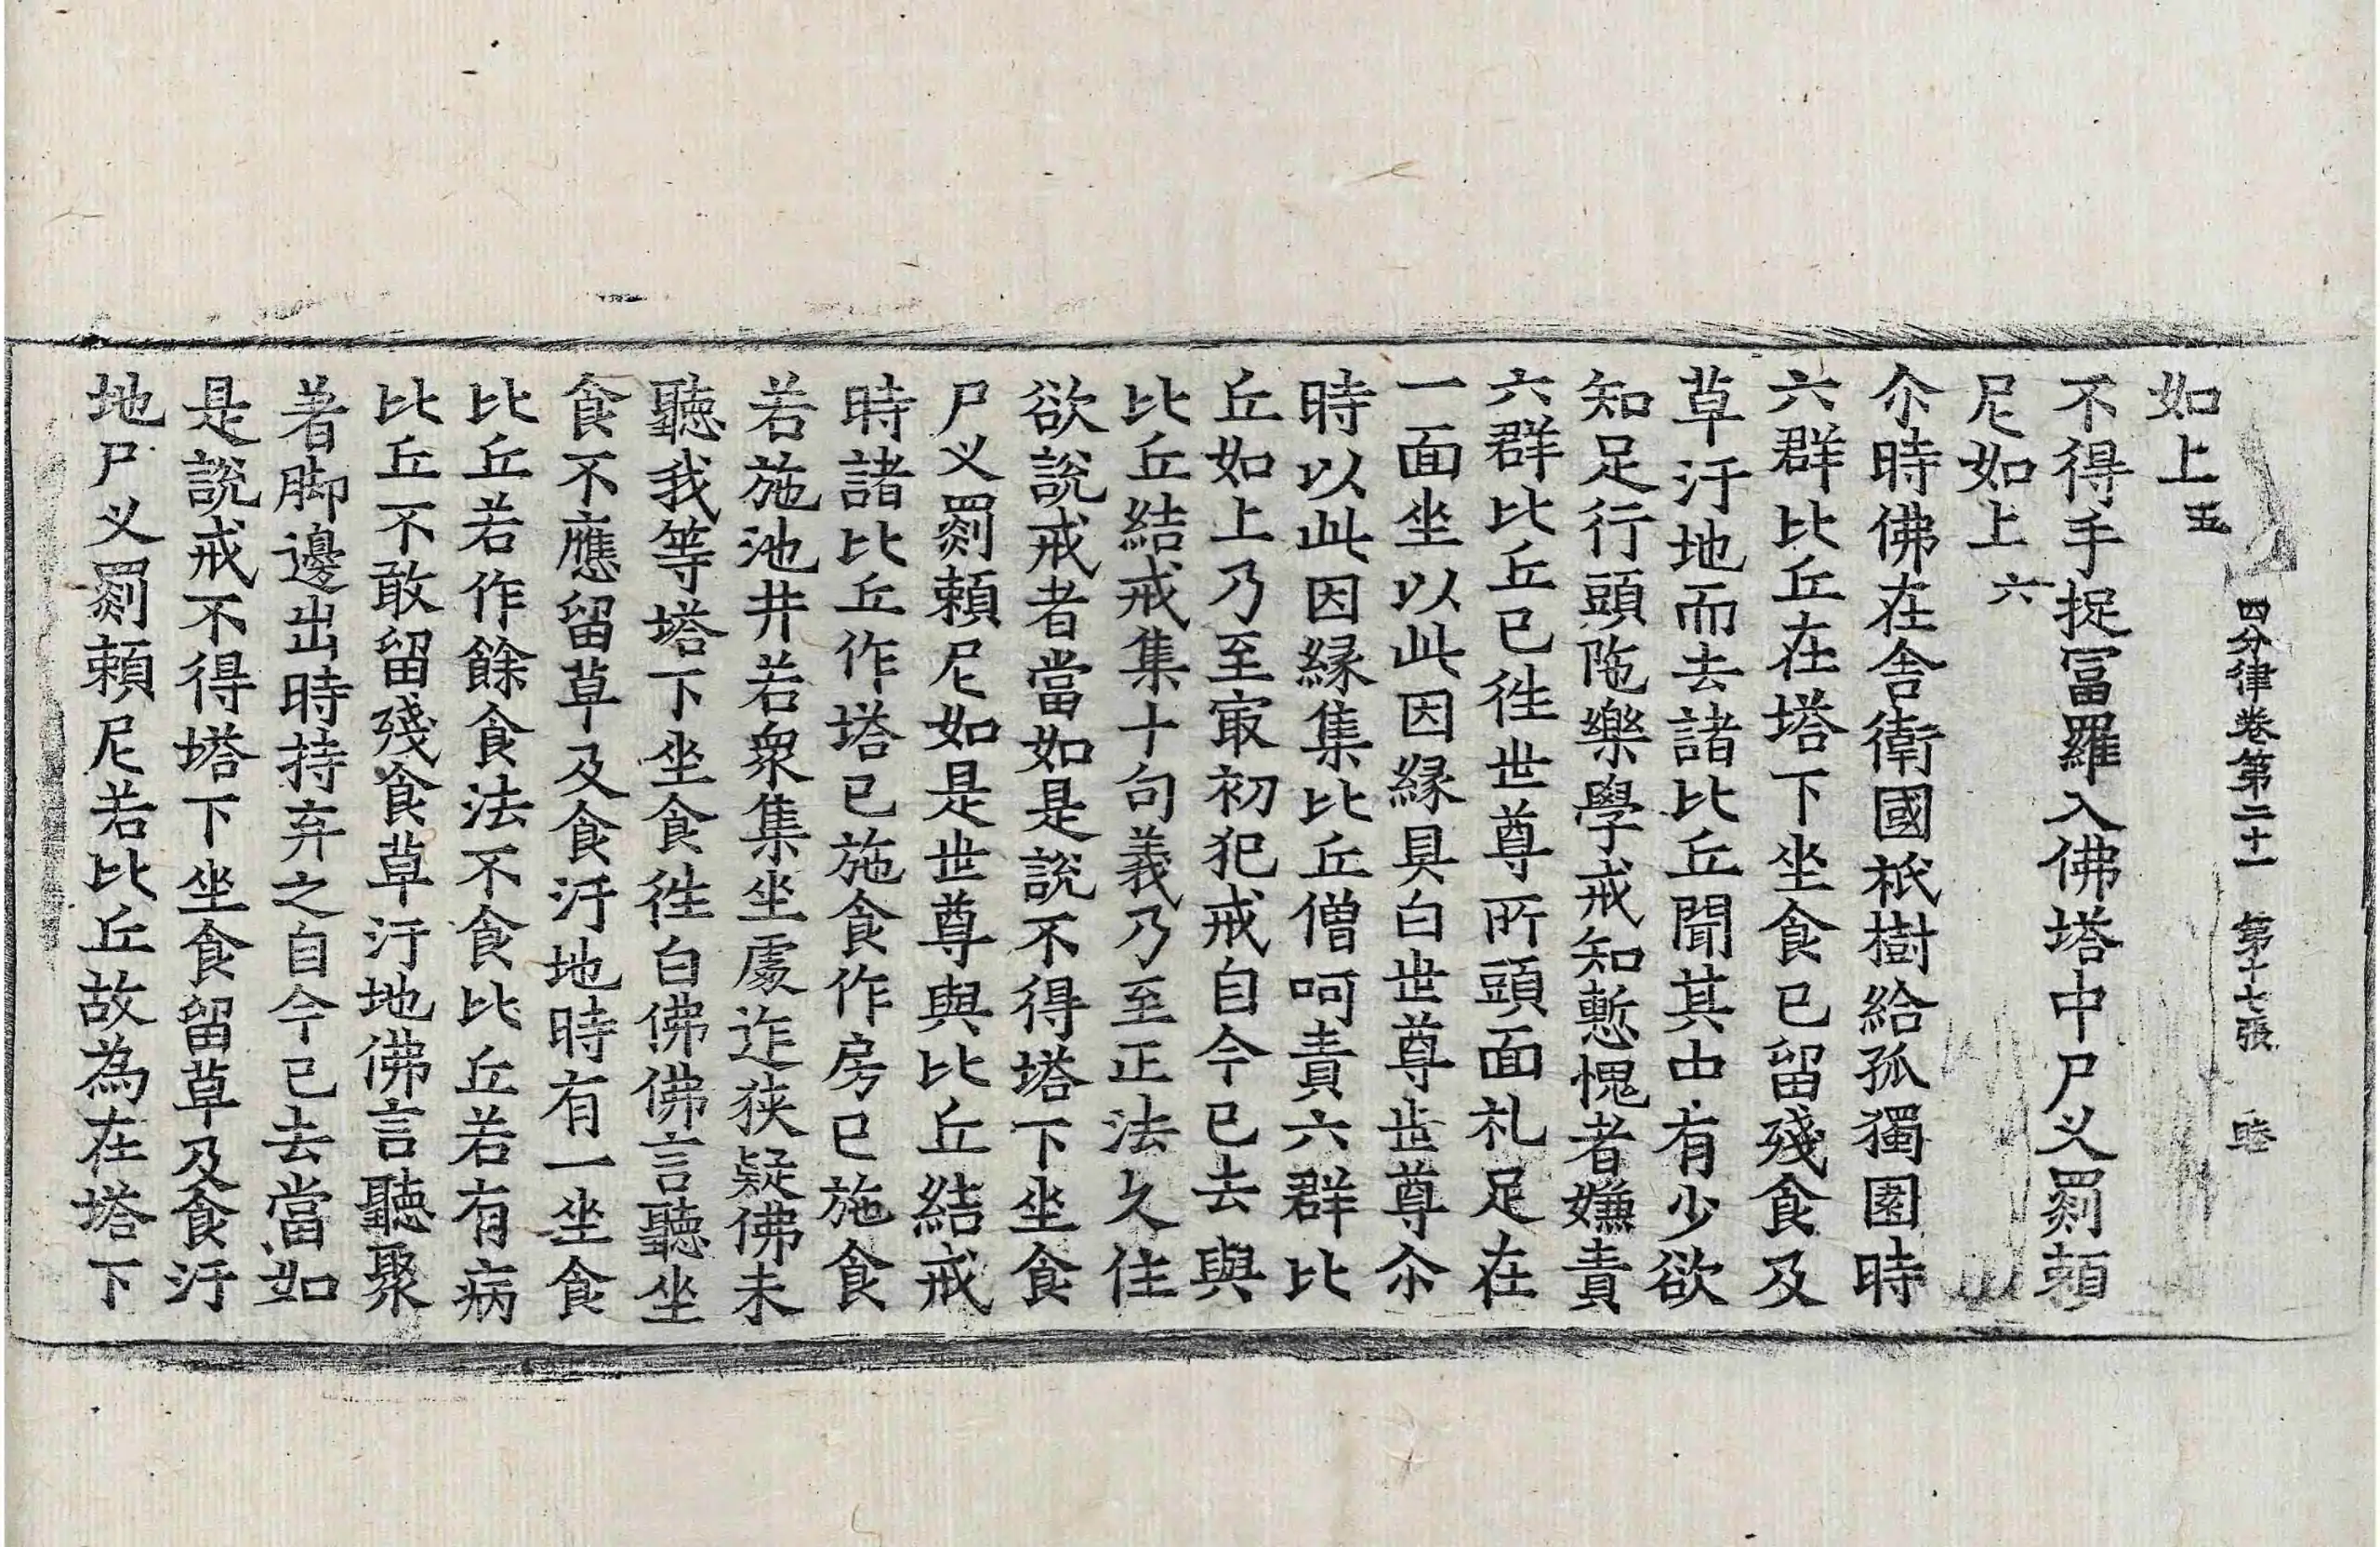 四分律卷第二十一　第十七張　睦
如上五
不得手捉冨羅入佛塔中尸义罽頼
尼如上六
尒時佛在舎衛國祇樹給孤獨園時
六群比丘在塔下坐食已留殘食及
草汙地而去諸比丘聞其中有少欲
知足行頭陁樂學戒知慙愧者嫌責
六群比丘已徃世尊所頭面礼足在
一面坐以此因縁具白世尊世尊尒
時以此因縁集比丘僧呵責六群比
丘如上乃至冣初犯戒自今已去與
比丘結戒集十句義乃至正法久住
欲說戒者當如是說不得塔下坐食
尸义罽頼尼如是世尊與比丘結戒
時諸比丘作塔已施食作房已施食
若施池井若衆集坐處迮狹疑佛未
聽我等塔下坐食徃白佛佛言聽坐
食不應留草及食汙地時有一坐食
比丘若作餘食法不食比丘若有病
比丘不敢留殘食草汙地佛言聽聚
著脚邊出時持弃之自今已去當如
是說戒不得塔下坐食留草及食汙
地尸义罽頼尼若比丘故為在塔下